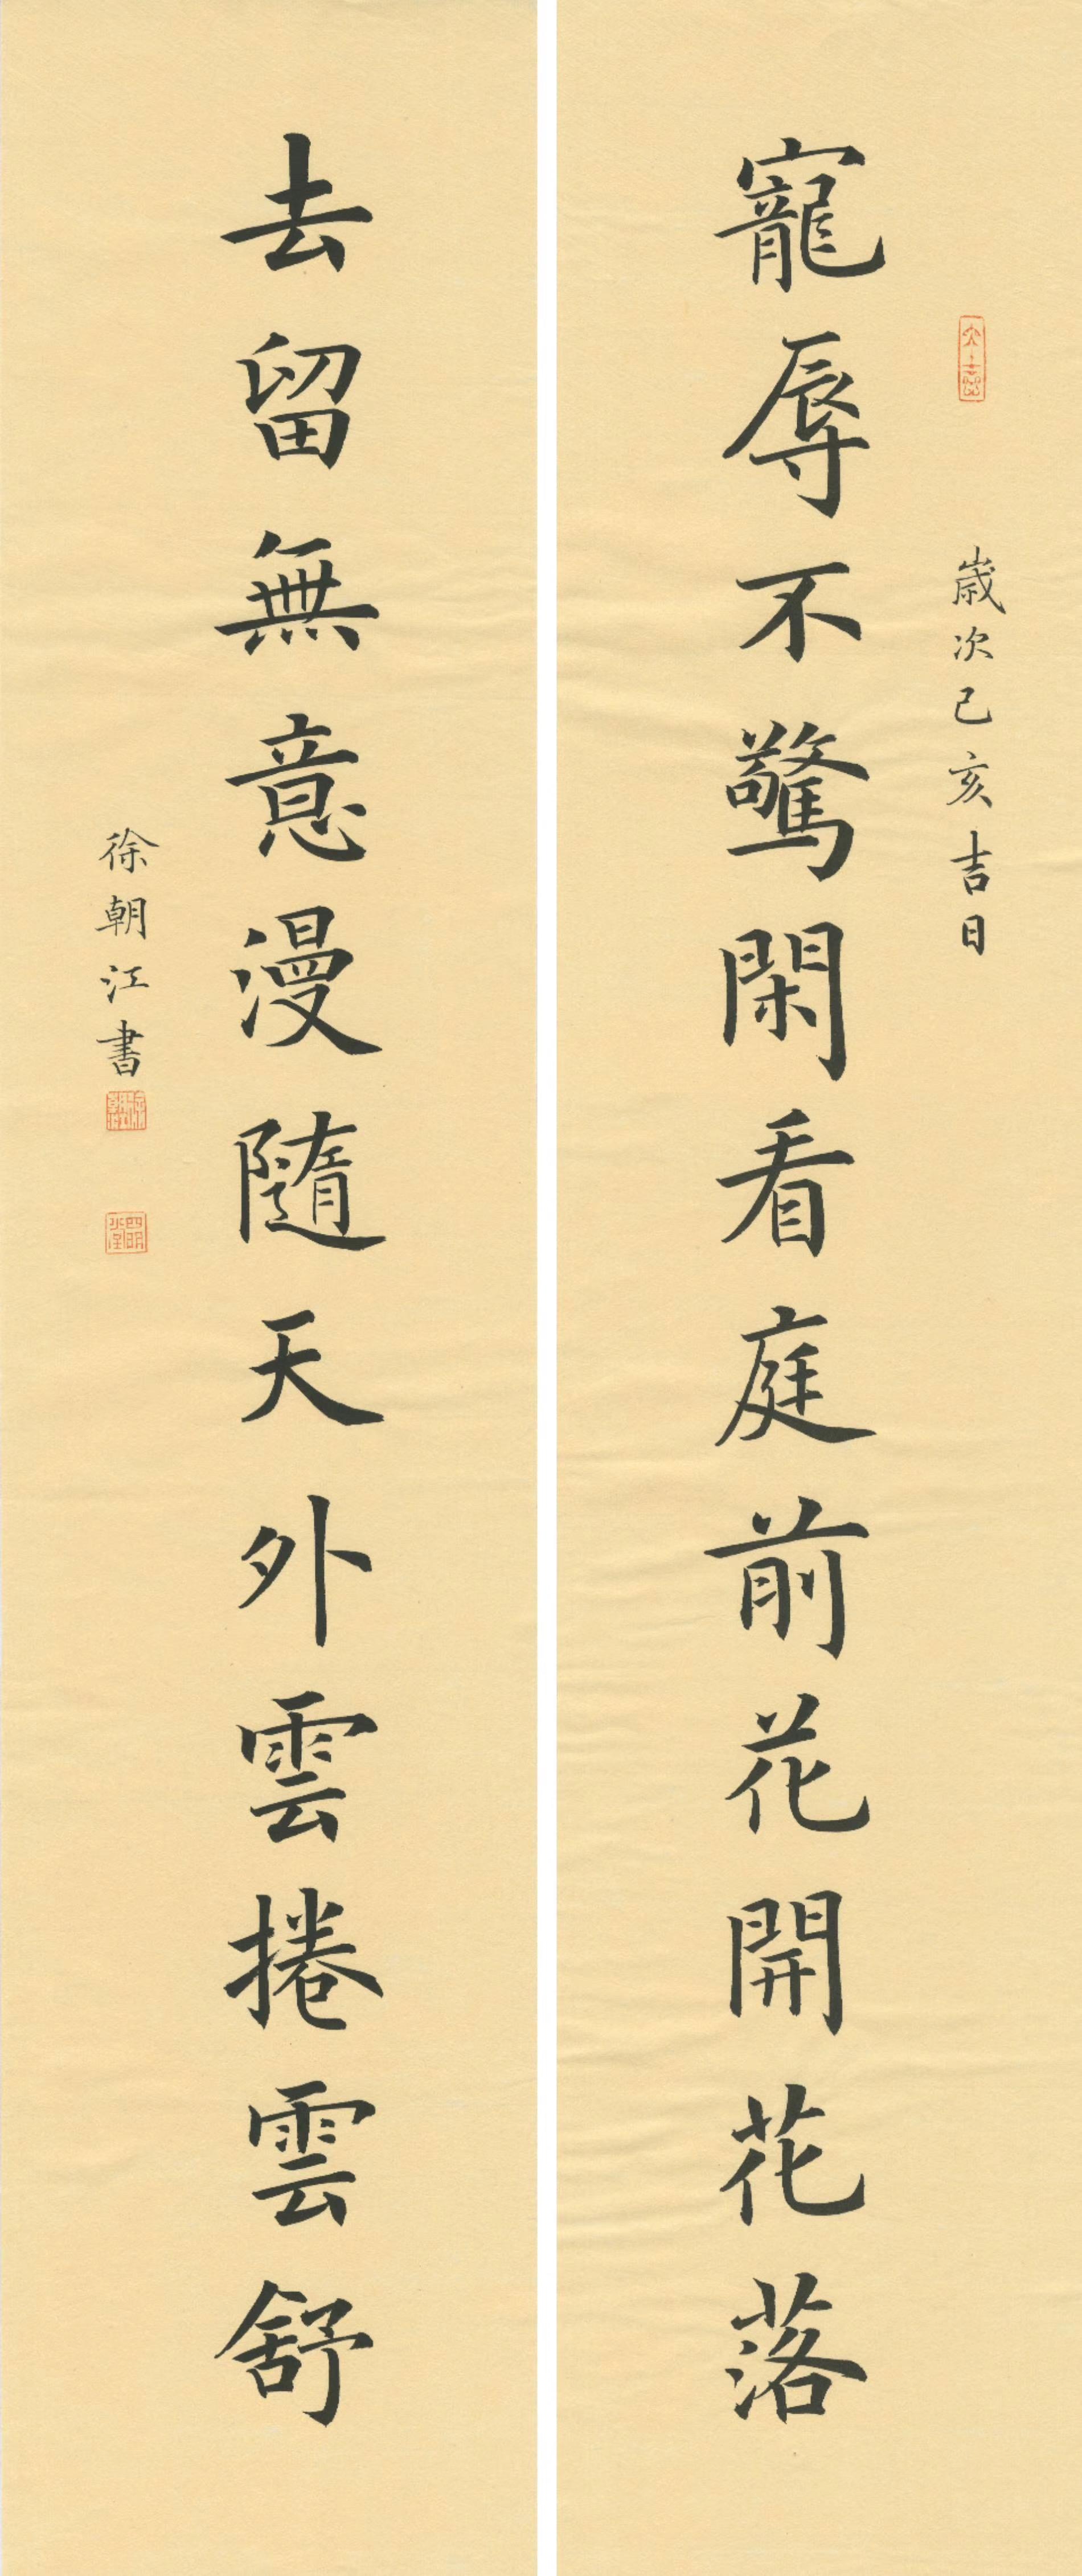 歲次己亥吉日
寵辱不驚閑看庭前花開花落
去留無意漫隨天外雲捲雲舒
徐朝江書